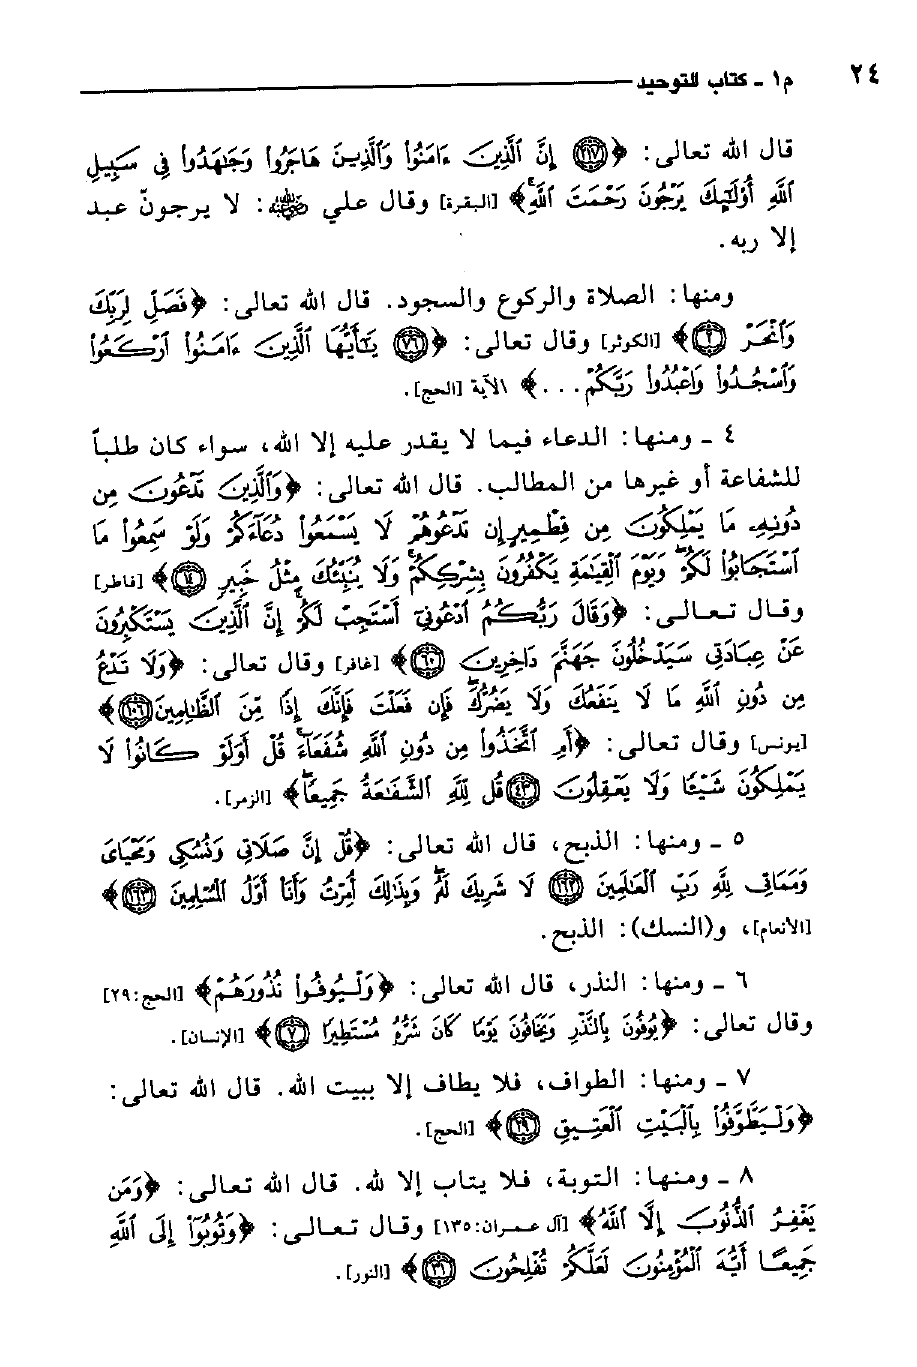 م١ ـ كتاب التوحيد ٢٤
قال الله تعالى: ﴿٢١٧ إِنَّ ٱلَّذِينَ ءَامَنُوا۟ وَٱلَّذِينَ هَاجَرُوا۟ وَجَـٰهَدُوا۟ فِى سَبِيلِ
ٱللَّهِ أُو۟لَـٰٓئِكَ يَرْجُونَ رَحْمَتَ ٱللَّهِ﴾ [البقرة] وقال علي رضي الله عنه: لا يرجونّ عبد
إلا ربه.
ومنها: الصلاة والركوع والسجود. قال الله تعالى: ﴿فَصَلِّ لِرَبِّكَ
وَٱنْحَرْ ٢﴾ [الكوثر] وقال تعالى: ﴿٧٦ يَـٰٓأَيُّهَا ٱلَّذِينَ ءَامَنُوا۟ ٱرْكَعُوا۟
وَٱسْجُدُوا۟ وَٱعْبُدُوا۟ رَبَّكُمْ...﴾ الآية [الحج].
٤ ـ ومنها: الدعاء فيما لا يقدر عليه إلا الله، سواء كان طلباً
للشفاعة أو غيرها من المطالب. قال الله تعالى: ﴿وَٱلَّذِينَ تَدْعُونَ مِن
دُونِهِۦ مَا يَمْلِكُونَ مِن قِطْمِيرٍ إِن تَدْعُوهُمْ لَا يَسْمَعُوا۟ دُعَآءَكُمْ وَلَوْ سَمِعُوا۟ مَا
ٱسْتَجَابُوا۟ لَكُمْ ۖ وَيَوْمَ ٱلْقِيَـٰمَةِ يَكْفُرُونَ بِشِرْكِكُمْ ۚ وَلَا يُنَبِّئُكَ مِثْلُ خَبِيرٍ ١٤﴾ [فاطر]
وقال تعالى: ﴿وَقَالَ رَبُّكُمُ ٱدْعُونِىٓ أَسْتَجِبْ لَكُمْ ۚ إِنَّ ٱلَّذِينَ يَسْتَكْبِرُونَ
عَنْ عِبَادَتِى سَيَدْخُلُونَ جَهَنَّمَ دَاخِرِينَ ٦٠﴾ [غافر] وقال تعالى: ﴿وَلَا تَدْعُ
مِن دُونِ ٱللَّهِ مَا لَا يَنفَعُكَ وَلَا يَضُرُّكَ ۖ فَإِن فَعَلْتَ فَإِنَّكَ إِذًا مِّنَ ٱلظَّـٰلِمِينَ ١٠٦﴾
[يونس] وقال تعالى: ﴿أَمِ ٱتَّخَذُوا۟ مِن دُونِ ٱللَّهِ شُفَعَآءَ ۚ قُلْ أَوَلَوْ كَانُوا۟ لَا
يَمْلِكُونَ شَيْـًٔا وَلَا يَعْقِلُونَ ٤٣ قُل لِّلَّهِ ٱلشَّفَـٰعَةُ جَمِيعًا ۖ﴾ [الزمر].
٥ ـ ومنها: الذبح، قال الله تعالى: ﴿قُلْ إِنَّ صَلَاتِى وَنُسُكِى وَمَحْيَاىَ
وَمَمَاتِى لِلَّهِ رَبِّ ٱلْعَـٰلَمِينَ ١٦٢ لَا شَرِيكَ لَهُۥ ۖ وَبِذَٰلِكَ أُمِرْتُ وَأَنَا۠ أَوَّلُ ٱلْمُسْلِمِينَ ١٦٣﴾
[الأنعام]، و(النسك): الذبح.
٦ ـ ومنها: النذر، قال الله تعالى: ﴿وَلْيُوفُوا۟ نُذُورَهُمْ﴾ [الحج:٢٩]
وقال تعالى: ﴿يُوفُونَ بِٱلنَّذْرِ وَيَخَافُونَ يَوْمًا كَانَ شَرُّهُۥ مُسْتَطِيرًا ٧﴾ [الإنسان].
٧ ـ ومنها: الطواف، فلا يطاف إلا ببيت الله. قال الله تعالى:
﴿وَلْيَطَّوَّفُوا۟ بِٱلْبَيْتِ ٱلْعَتِيقِ ٢٩﴾ [الحج].
٨ ـ ومنها: التوبة، فلا يتاب إلا لله. قال الله تعالى: ﴿وَمَن
يَغْفِرُ ٱلذُّنُوبَ إِلَّا ٱللَّهُ﴾ [آل عمران:١٣٥] وقال تعالى: ﴿وَتُوبُوٓا۟ إِلَى ٱللَّهِ
جَمِيعًا أَيُّهَ ٱلْمُؤْمِنُونَ لَعَلَّكُمْ تُفْلِحُونَ ٣١﴾ [النور].